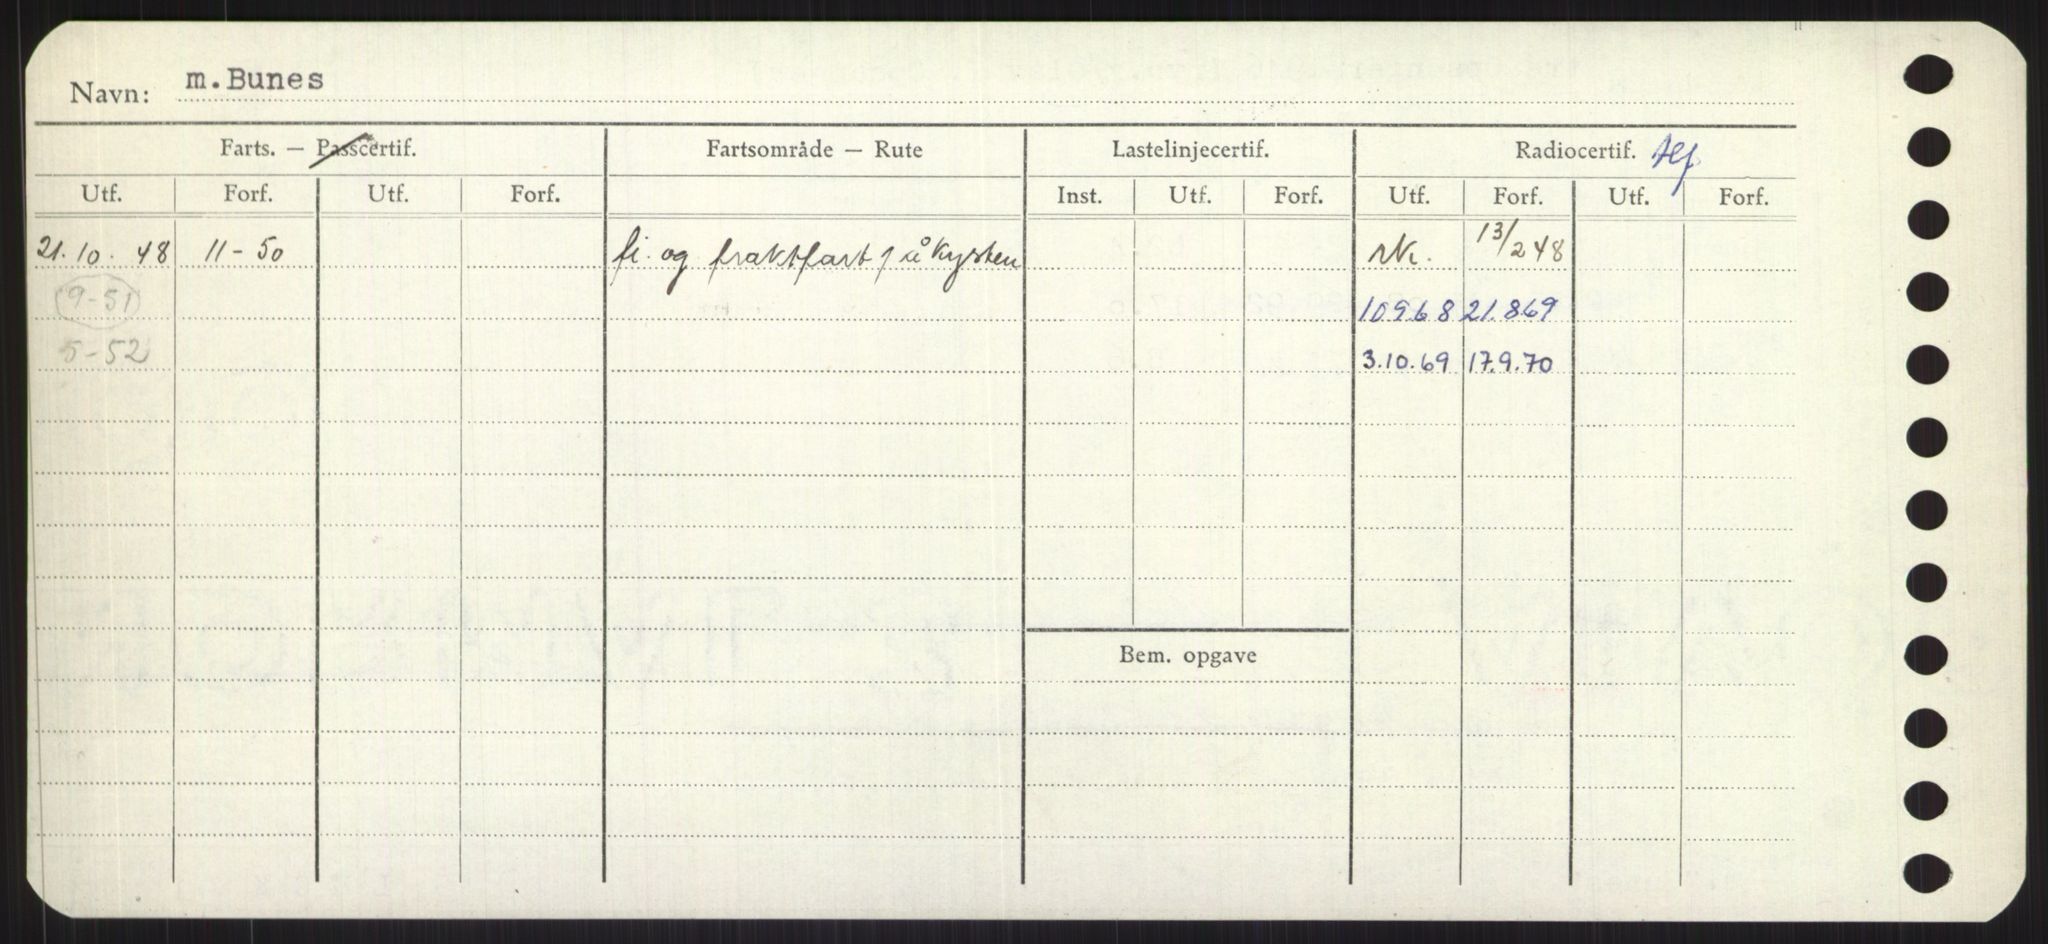 Navn: m.Bunes
Farts. — Passcertif. Fartsområde — Rute Lastelinjecertif. Radiocertif. tlf.
Utf. Forf. Utf. Forf. Inst. Utf. Forf. Utf. Forf. Utf. Forf.
21.10.48 11-50 fi. og fraktfart på kysten rk. 13/2 48
9-51 10968 21.869
5-52 3.10.69 17.9.70
Bem. opgave